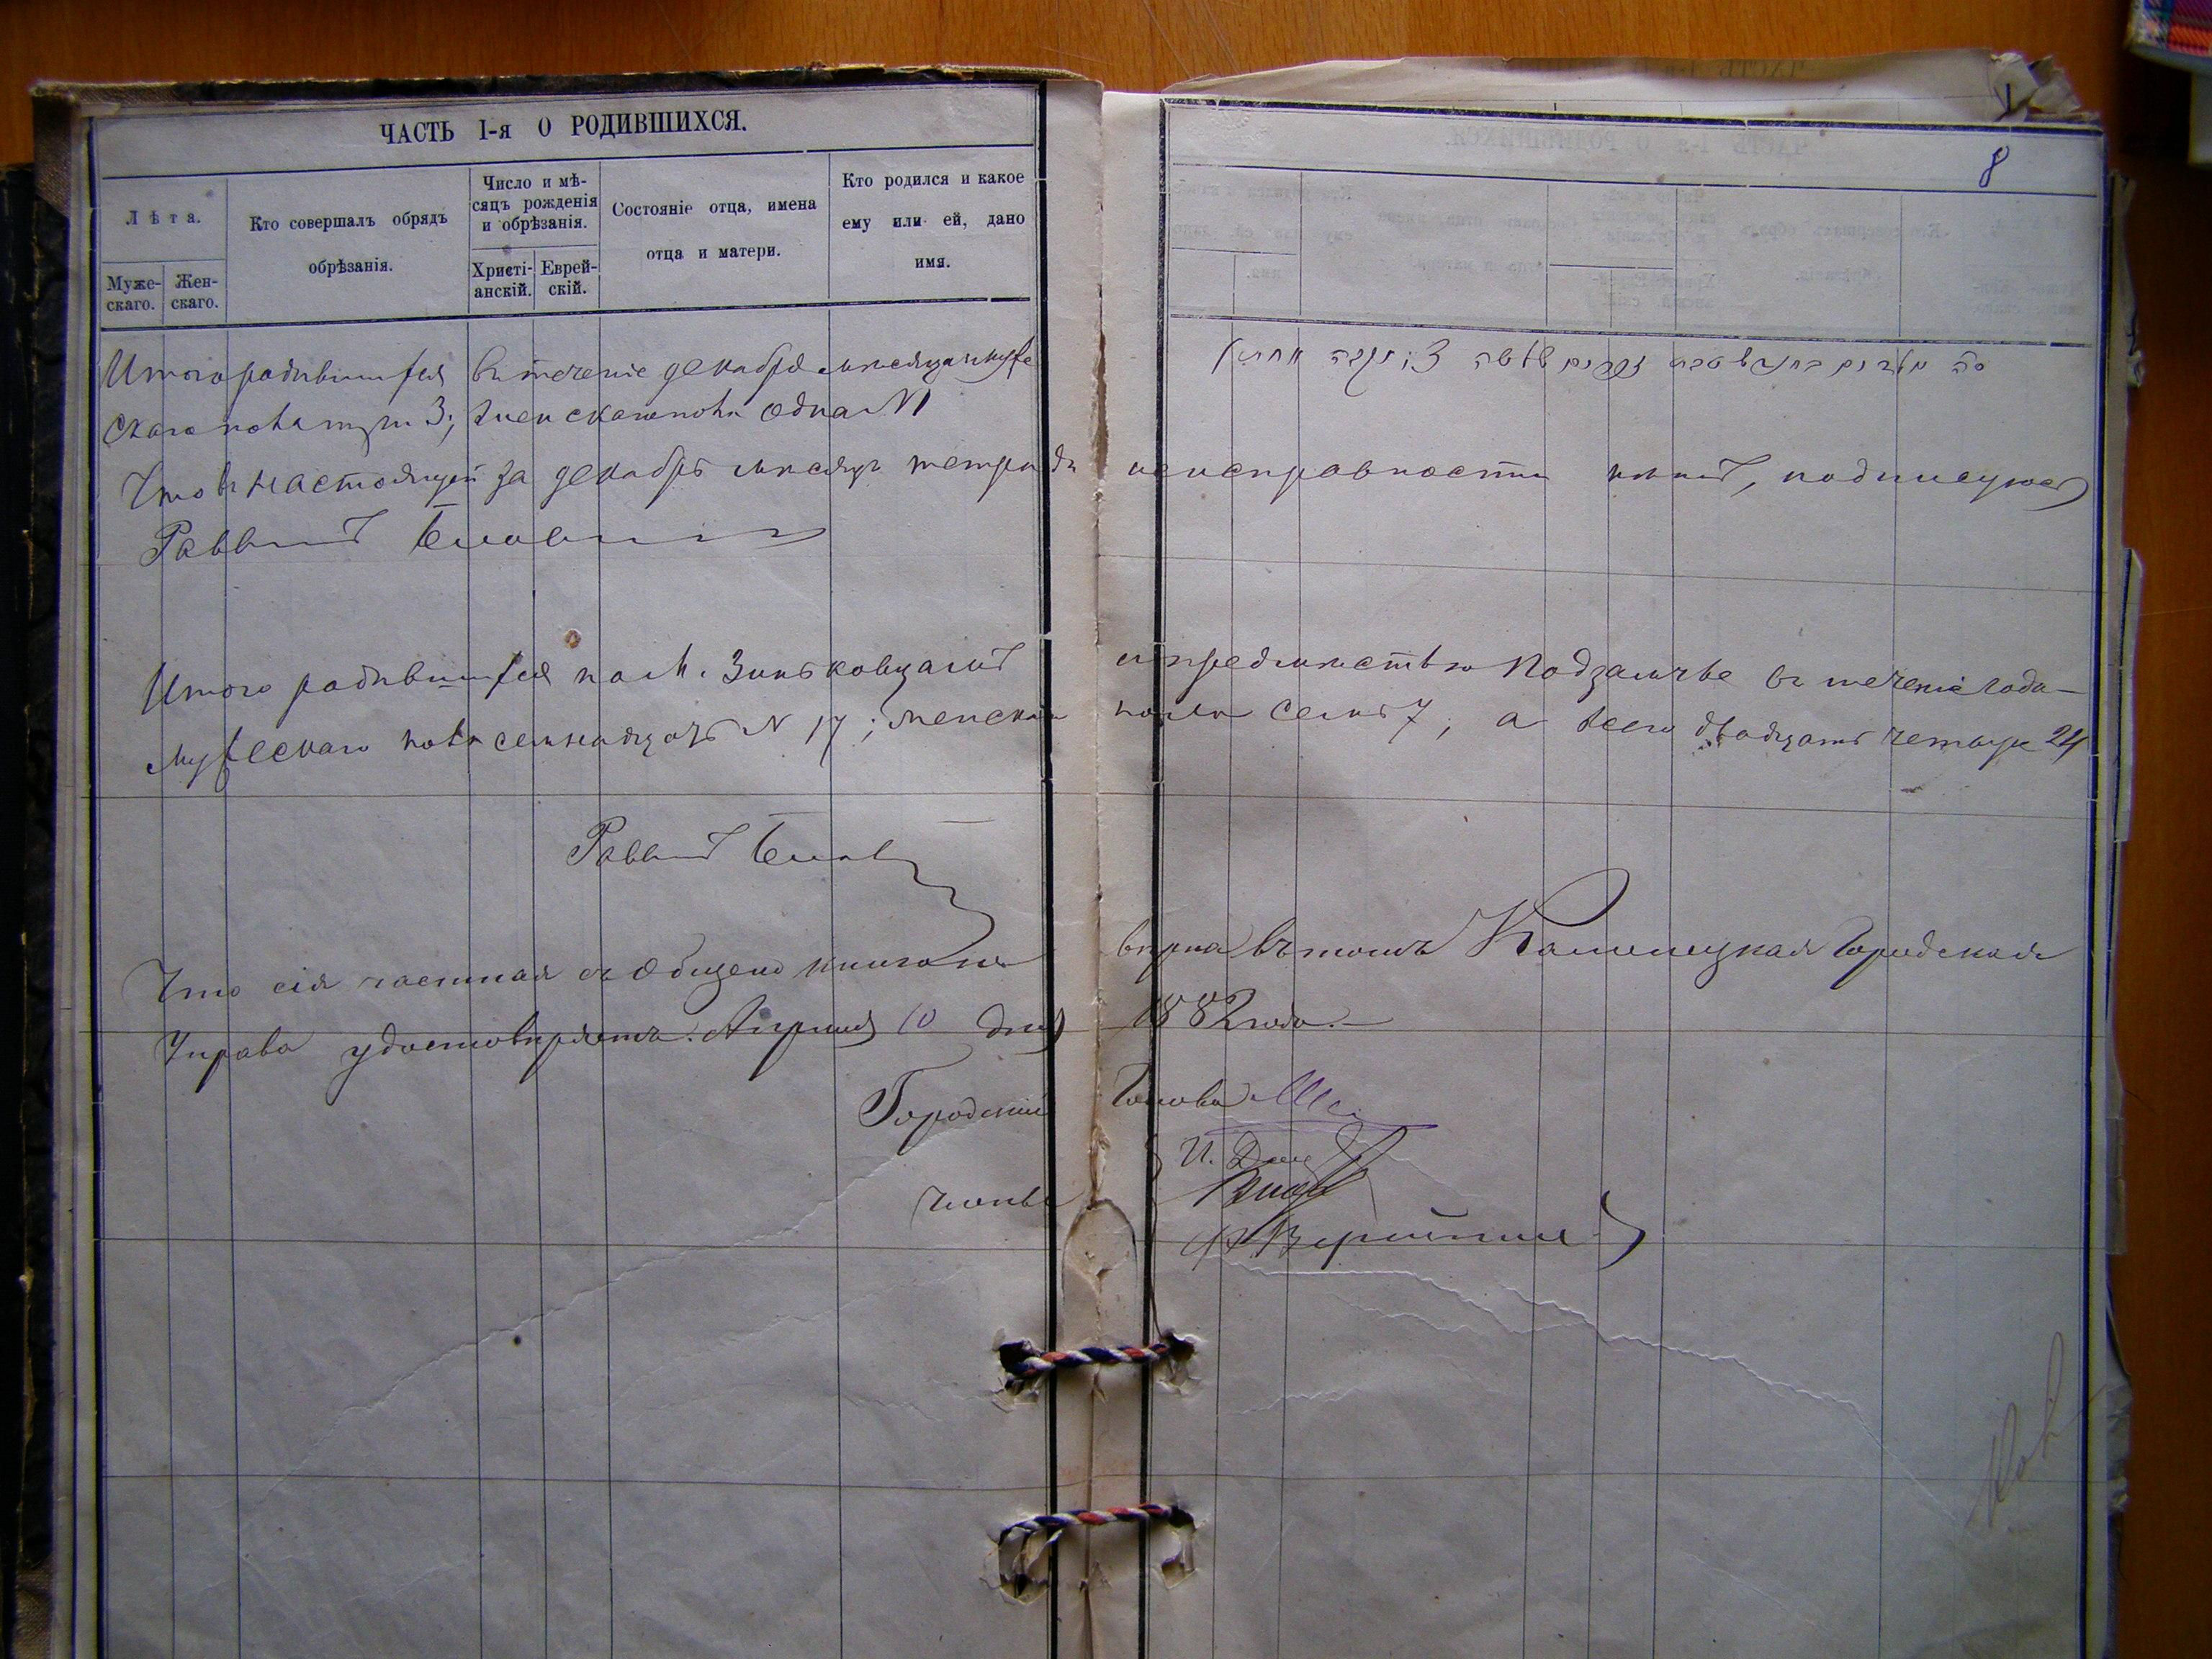 ЧАСТЬ I-я О РОДИВШИХСЯ.
8
Лѣта.
Муже-
скаго.
Жен-
скаго.
Кто совершалъ обрядъ
обрѣзанія.
Число и мѣ-
сяцъ рожденія
и обрѣзанія.
Христі-
анскій.
Еврей-
скій.
Состояніе отца, имена
отца и матери.
Кто родился и какое
ему или ей, дано
имя.
Итого родившихся въ теченіе декабря мѣсяца муже
скаго пола три 3; женскаго пола одна №1
Что въ настоящей за декабрь мѣсяцъ тетради неисправности нѣтъ, подписуюсь
Раввинъ
Итого родившихся по м. Зиньковцамъ и предмѣстью Подзамче въ теченіе года
мужескаго пола семнадцать № 17; женскаго пола семь 7; а всего двадцать четыре 24
Раввинъ
Что сія частная съ общею книгою вѣрна въ томъ Каменецкая Городская
Управа удостовѣряетъ. Апрѣля 10 дня 1882 года.
Городской Голова
Члены
И.